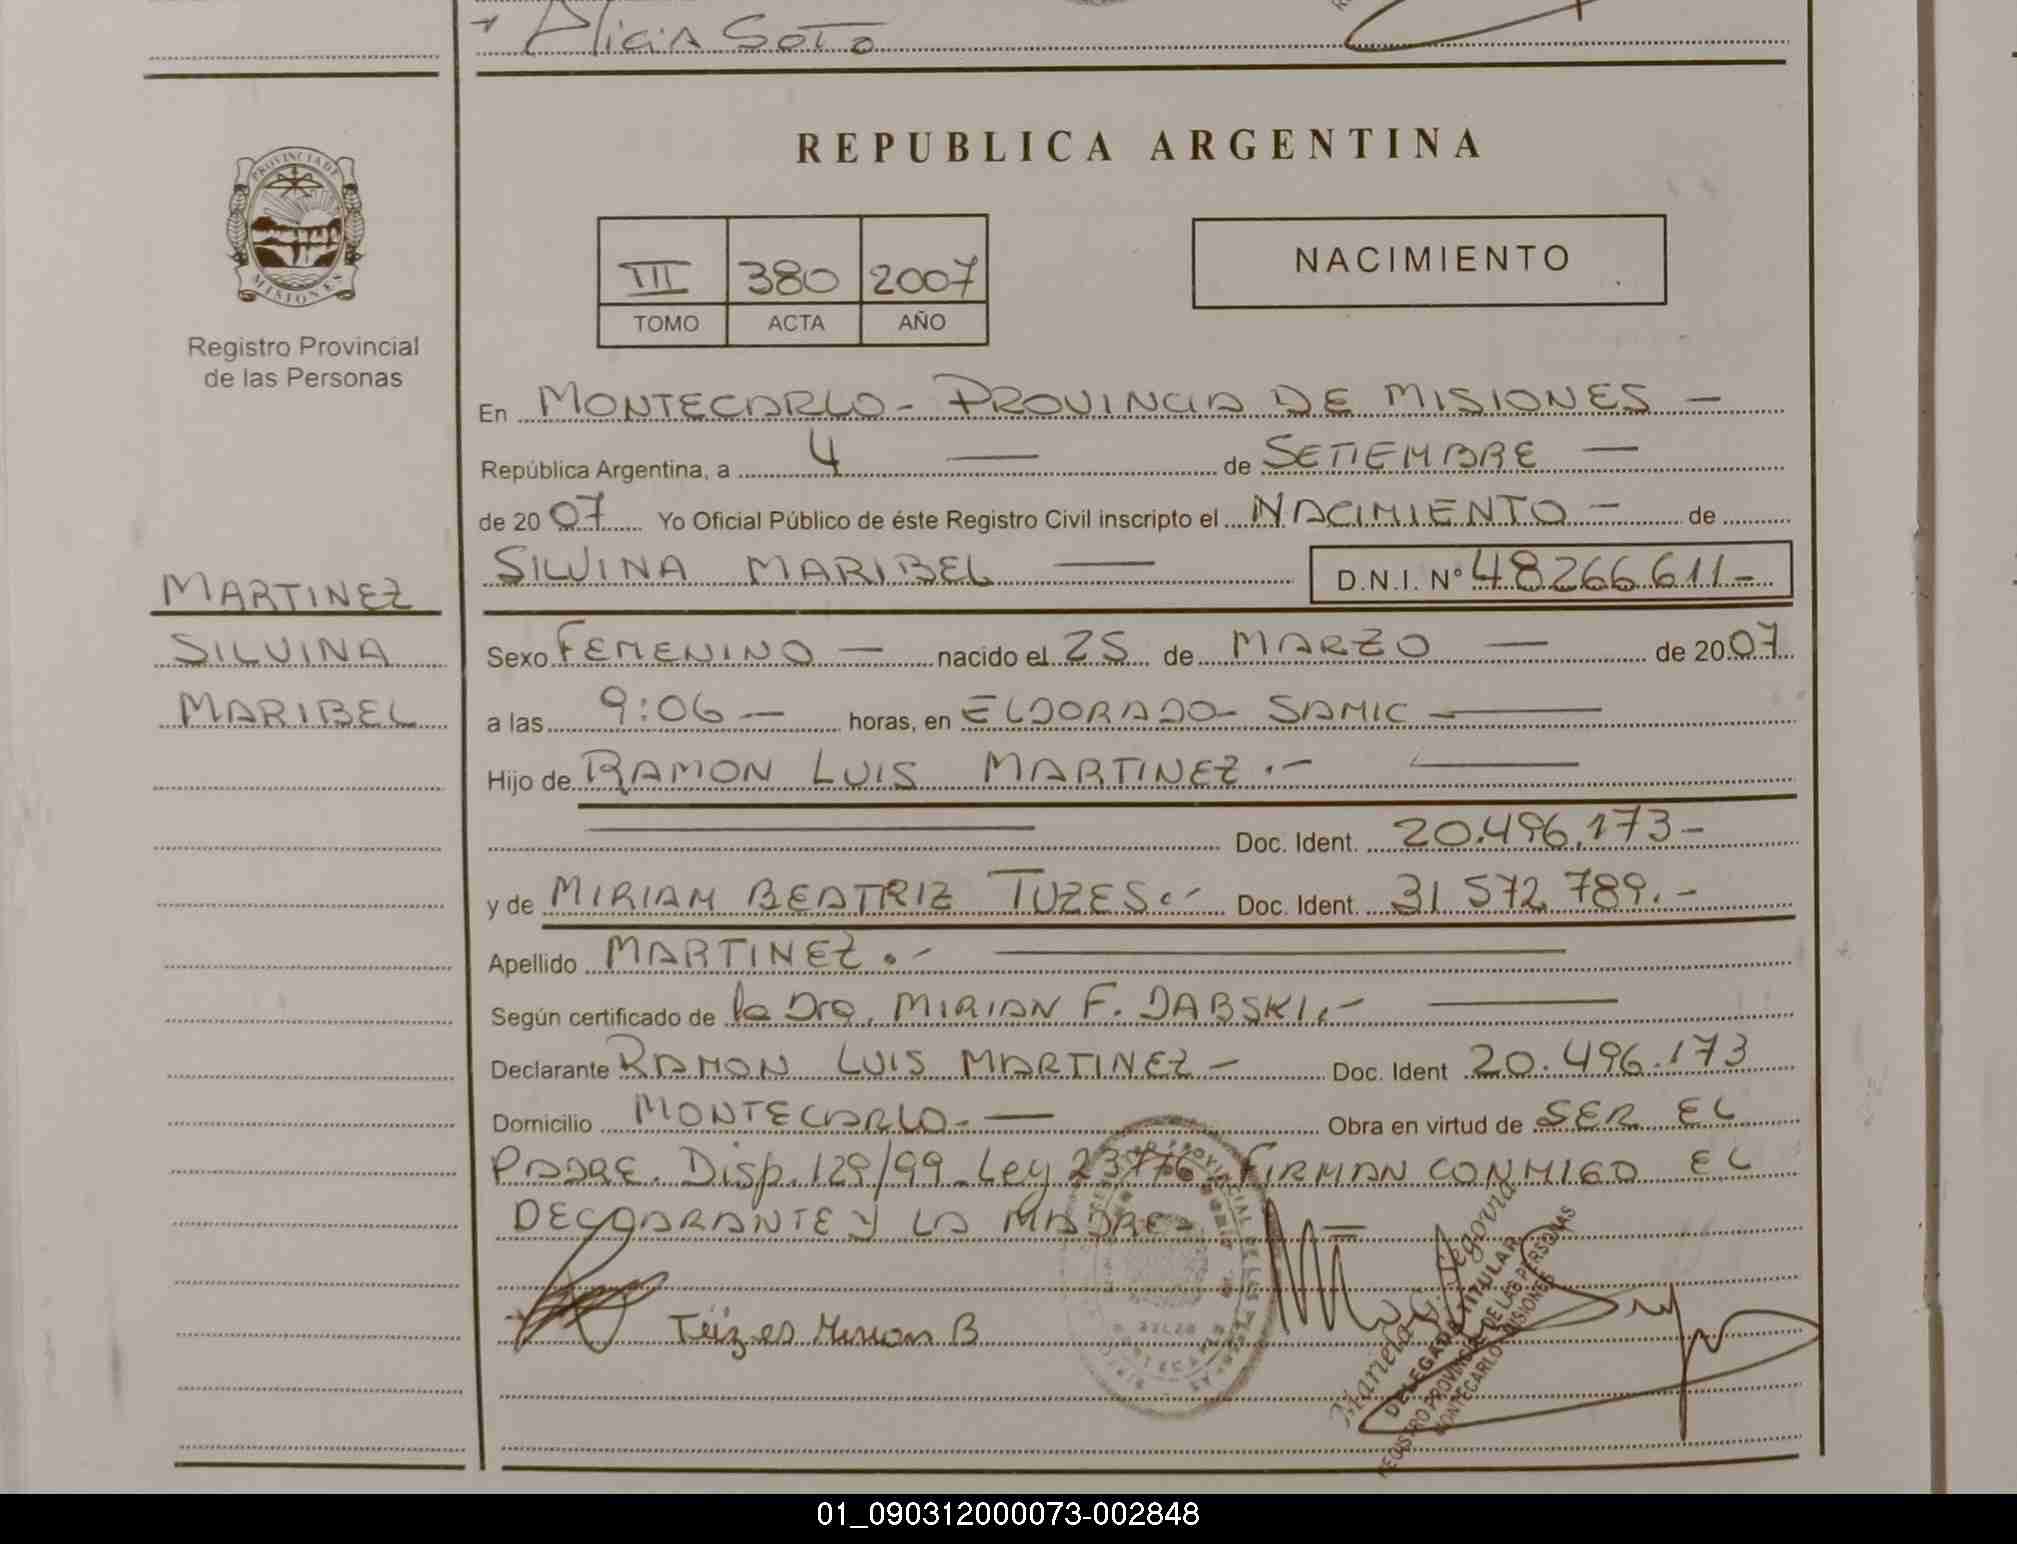 Alicia Soto
REPUBLICA ARGENTINA
PROVINCIA DE
MISIONES
Registro Provincial
de las Personas
III 380 2007
TOMO ACTA AÑO
NACIMIENTO
En MONTECARLO - PROVINCIA DE MISIONES —
República Argentina, a 4 — de SETIEMBRE —
de 20 07 Yo Oficial Público de éste Registro Civil inscripto el NACIMIENTO — de
SILVINA MARIBEL — D.N.I. Nº 48266611-
MARTINEZ
SILVINA
MARIBEL
Sexo FEMENINO — nacido el 25 de MARZO — de 20 07
a las 9:06 — horas, en ELDORADO - SAMIC —
Hijo de RAMON LUIS MARTINEZ.- —
— Doc. Ident. 20.496.173-
y de MIRIAM BEATRIZ TUZES.- Doc. Ident. 31 572 789.-
Apellido MARTINEZ.- —
Según certificado de la Dra. MIRIAN F. DABSKI.- —
Declarante RAMON LUIS MARTINEZ - Doc. Ident 20.496.173
Domicilio MONTECARLO. — Obra en virtud de SER EL
PADRE. Disp. 129/99 - Ley 23776. FIRMAN CONMIGO EL
DECLARANTE Y LA MADRE-
B
Mariela Segovia
DELEGADA TITULAR
REGISTRO PROVINCIAL DE LAS PERSONAS
MONTECARLO - MISIONES
01_090312000073-002848